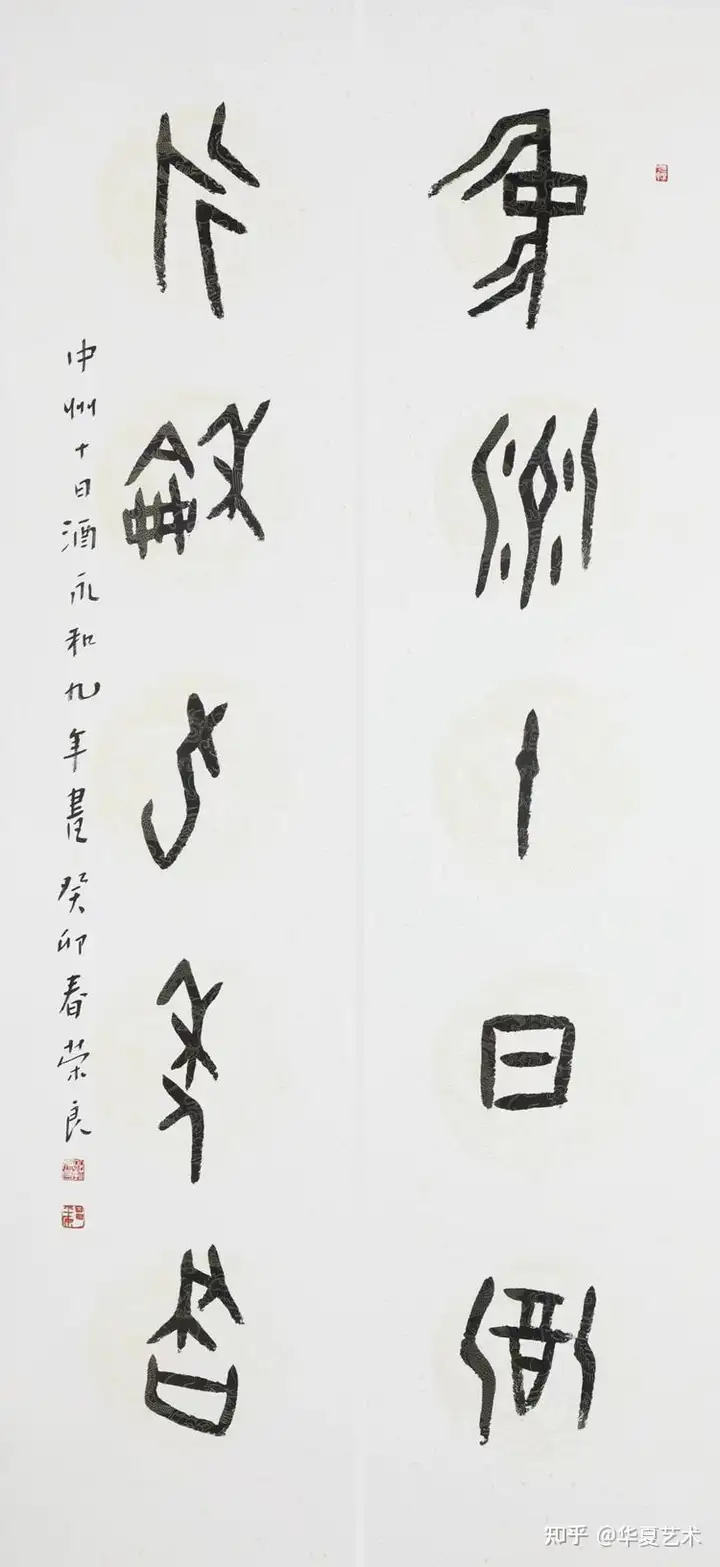 中州十日酒
永龢九年書
中州十日酒永和九年書癸卯春荣良
知乎 @华夏艺术